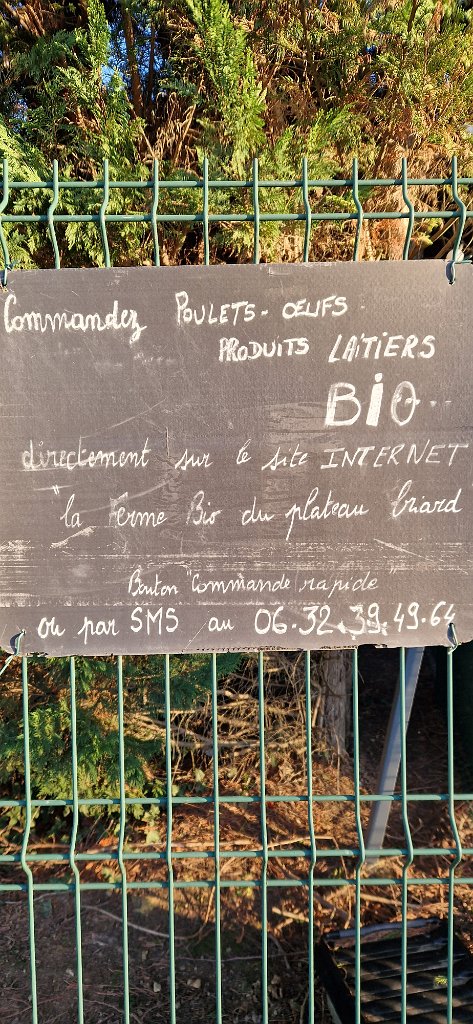 Commandez POULETS - ŒUFS
PRODUITS LAITIERS
BIO..
directement sur le site INTERNET
"la Ferme Bio du plateau briard"
Bouton "Commande rapide"
ou par SMS au 06.32.39.49.64